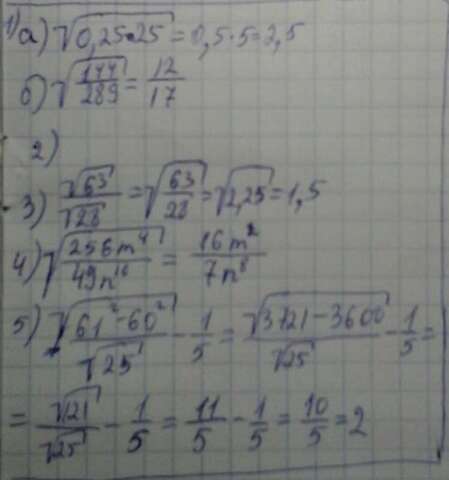 1) а) √(0,25·25) = 0,5·5 = 2,5
б) √(144/289) = 12/17
2)
3) √63/√28 = √(63/28) = √2,25 = 1,5
4) √(256m⁴/49n¹⁶) = 16m²/7n⁸
5) √(61²-60²)/√25 - 1/5 = √(3721-3600)/√25 - 1/5 =
= √121/√25 - 1/5 = 11/5 - 1/5 = 10/5 = 2